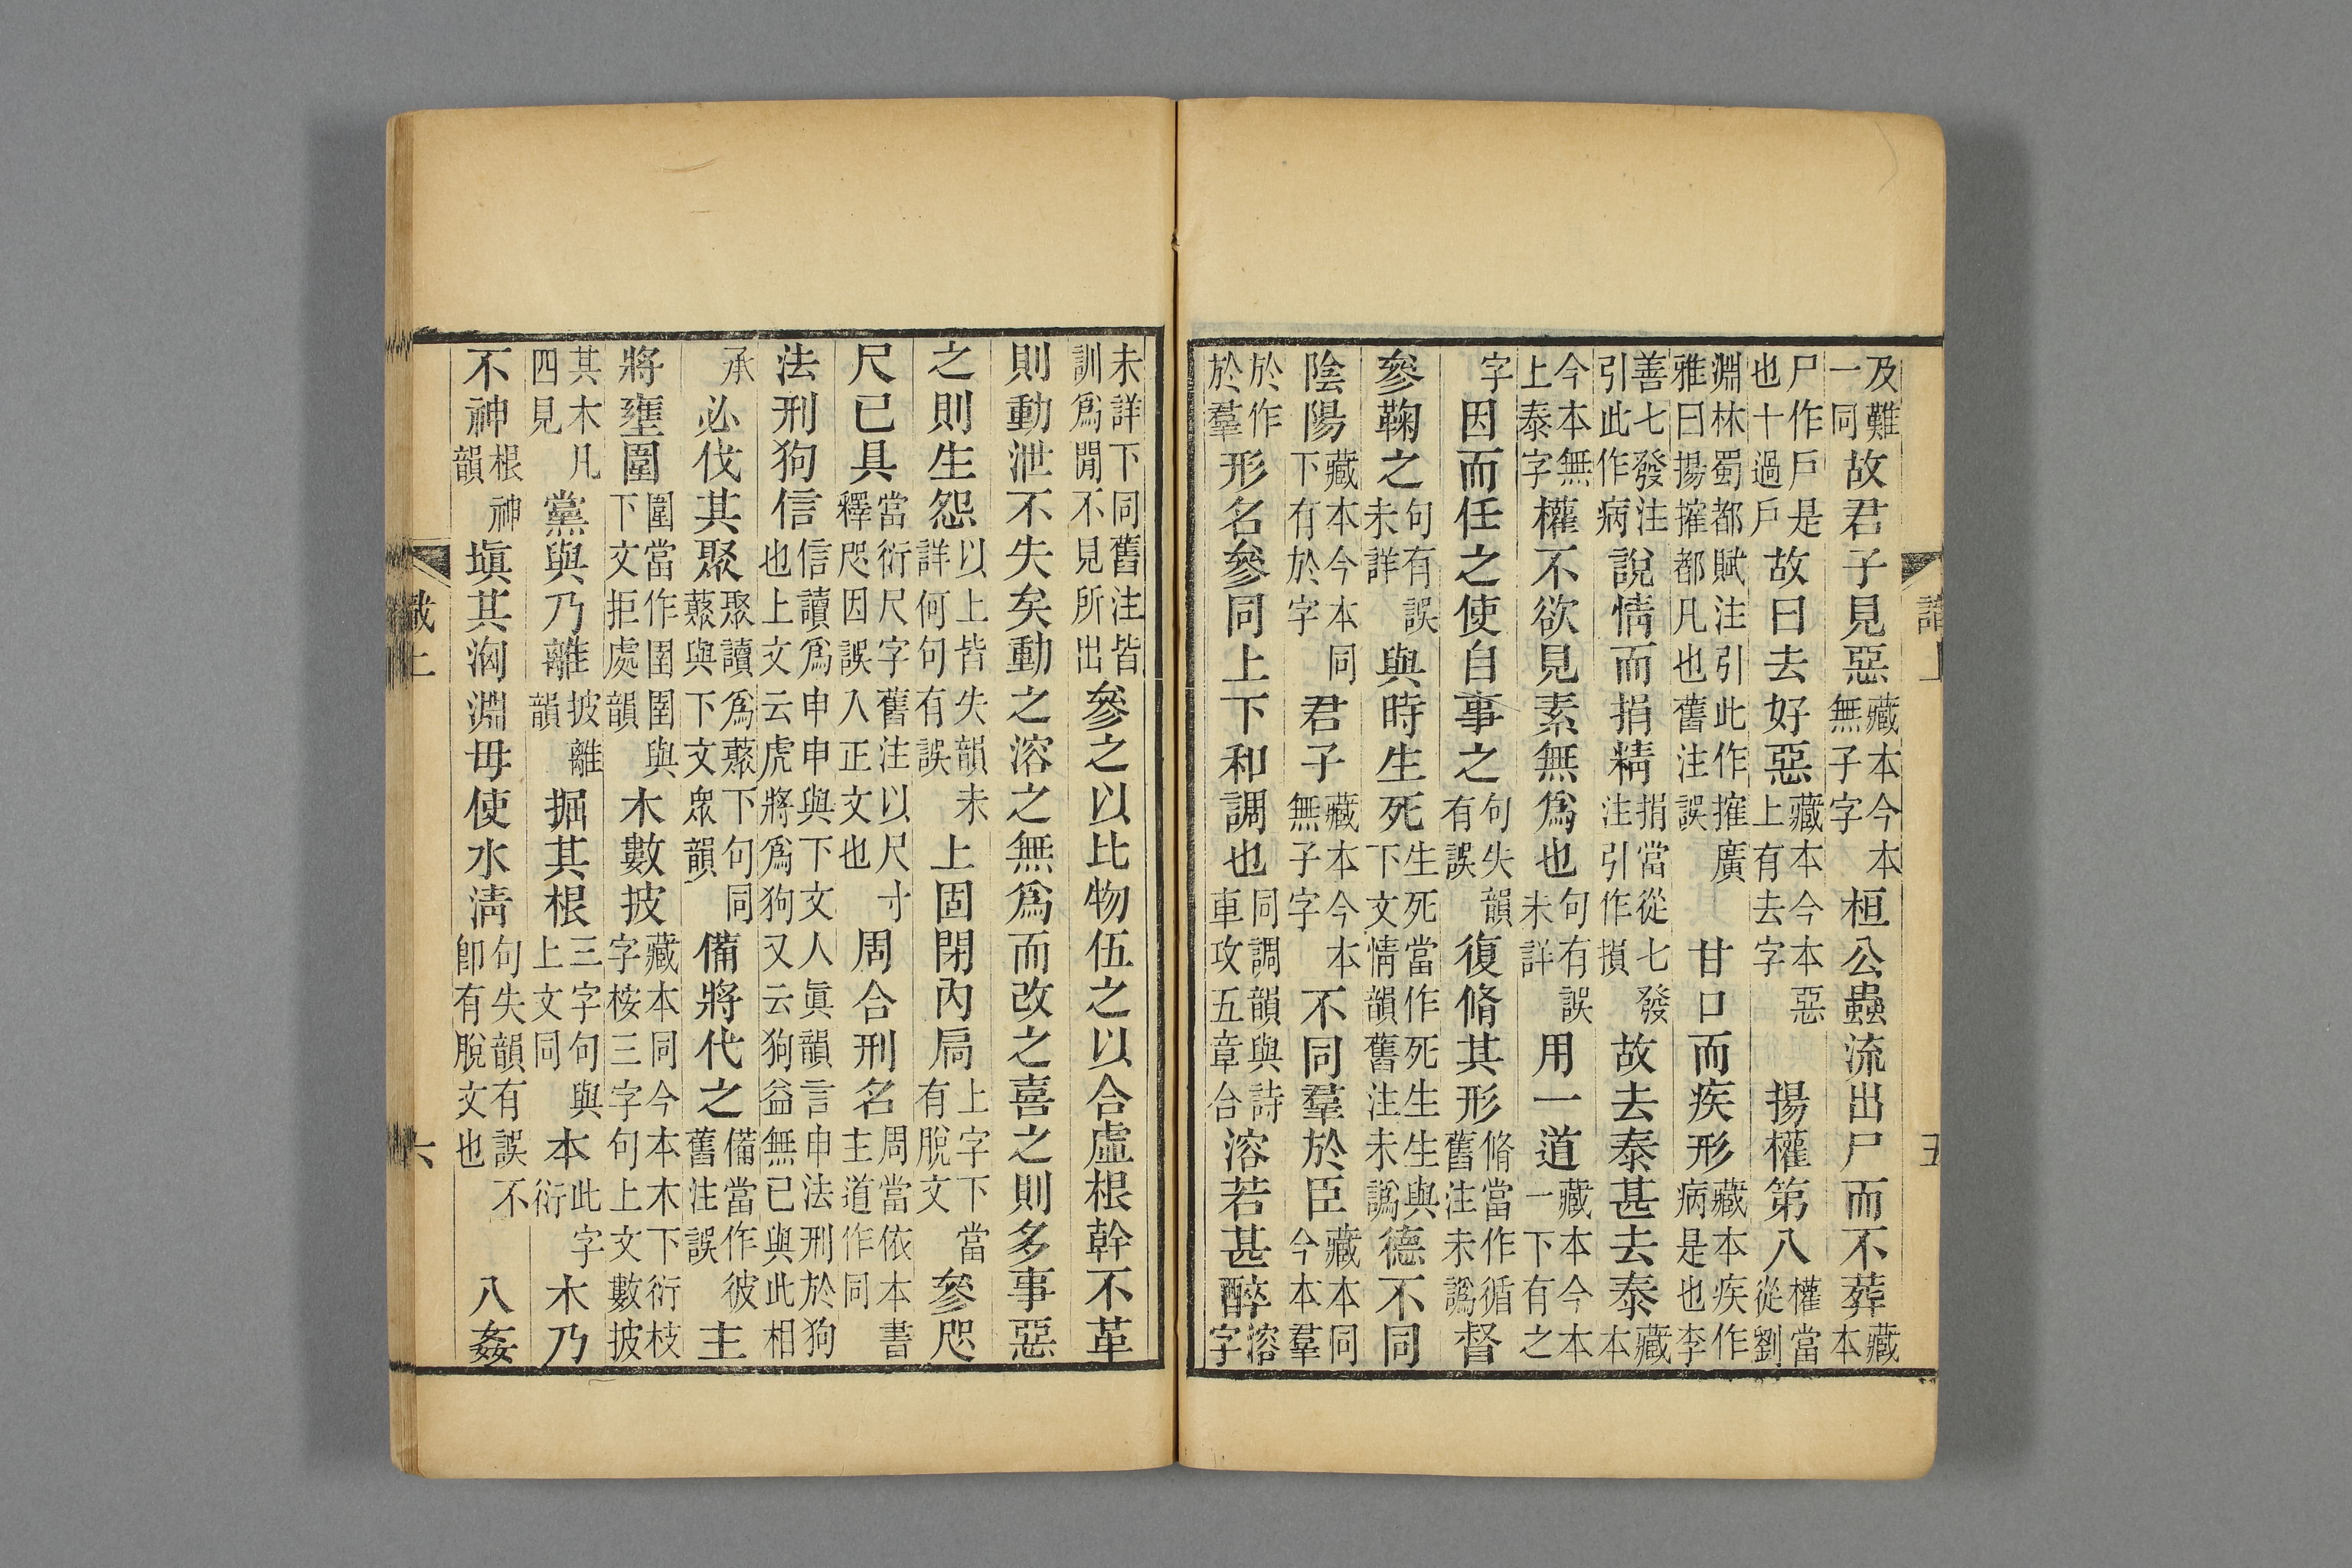 及難一同故君子見惡藏本今本無子字桓公蟲流出尸而不葬藏本
尸作戶是也十過戶故曰去好惡藏本今本惡上有去字揚權第八權當從劉
淵林蜀都賦注引此作搉廣雅曰揚搉都凡也舊注誤甘口而疾形藏本疾作病是也李
善七發注引此作病說情而捐精捐當從七發注引作損故去泰甚去泰藏本
今本無上泰字權不欲見素無爲也句有誤未詳用一道藏本今本一下有之
字因而任之使自事之句失韻有誤復脩其形脩當作循舊注未譌督
參鞠之句有誤未詳與時生死生死當作死生生與下文情韻舊注未譌德不同
陰陽藏本今本同下有於字君子藏本今本無子字不同羣於臣藏本同今本羣
於作於羣形名參同上下和調也同調韻與詩車攻五章合溶若甚醉溶字
未詳下同舊注皆訓爲閒不見所出參之以比物伍之以合虛根幹不革
則動泄不失矣動之溶之無爲而改之喜之則多事惡
之則生怨以上皆失韻未詳何句有誤上固閉內扃上字下當有脫文參咫
尺已具當衍尺字舊注以尺寸釋咫因誤入正文也周合刑名周當依本書主道作同
法刑狗信信讀爲申申與下文人眞韻言申法刑於狗也上文云虎將爲狗又云狗益無已與此相
承必伐其聚聚讀爲藂下句同藂與下文眾韻備將代之備當作彼舊注誤主
將壅圍圍當作圉圉與下文拒處韻木數披藏本同今本木下衍枝字桉三字句上文數披
其木凡四見黨與乃離披離韻掘其根三字句與上文同本此字衍木乃
不神根神韻塡其洶淵毋使水淸句失韻有誤不卽有脫文也八姦
識上 六